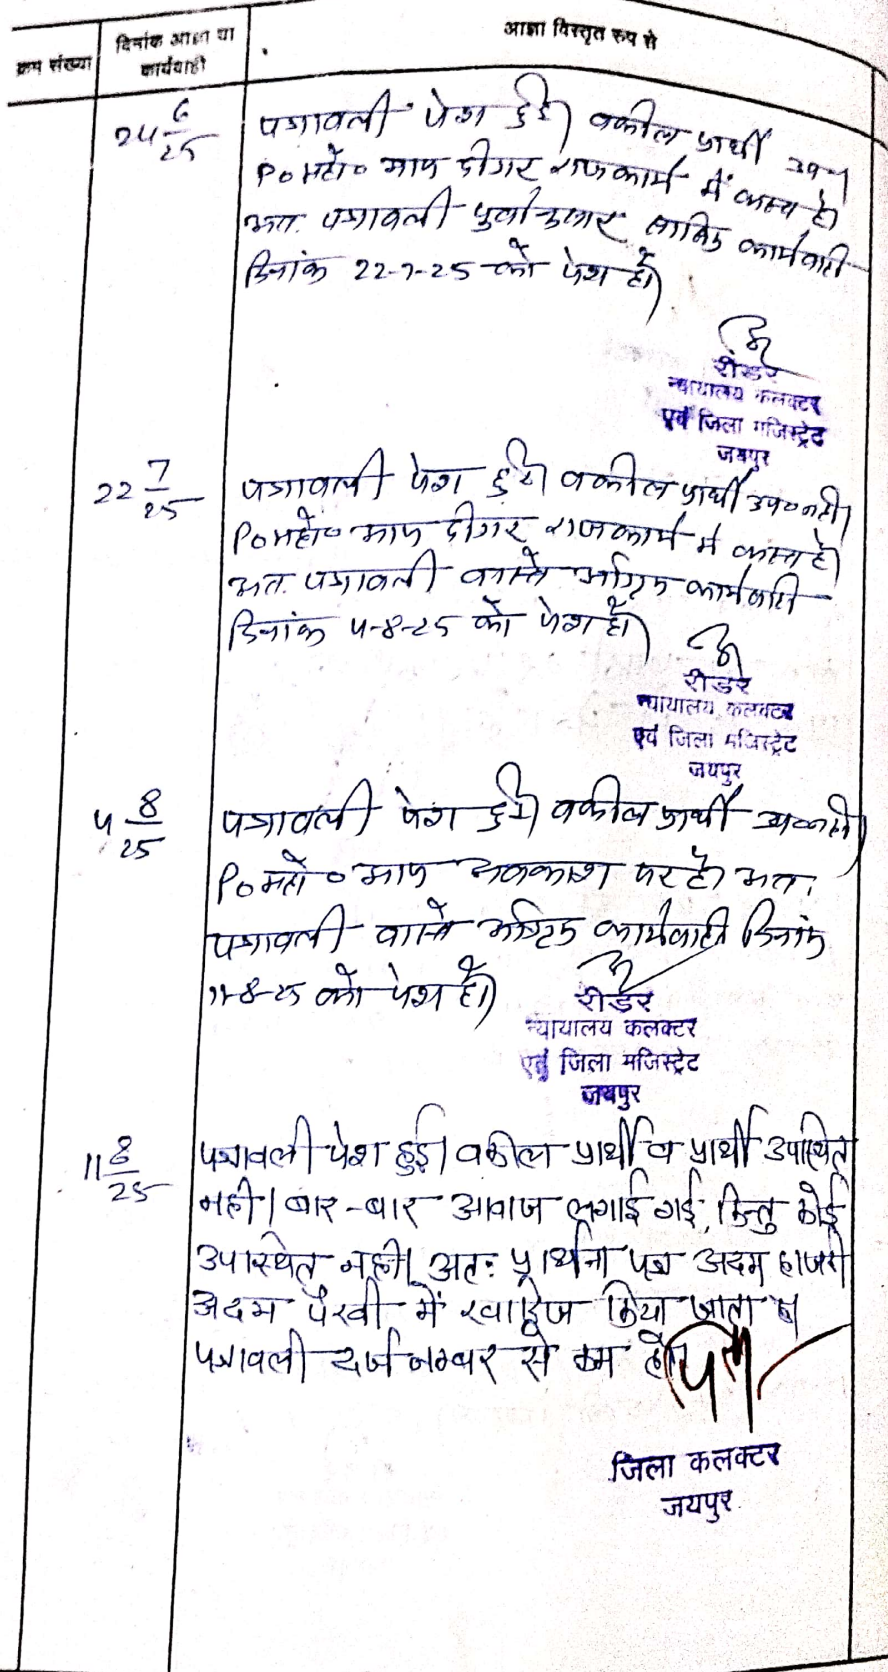 क्रम संख्या
दिनांक आज्ञा या
कार्यवाही
आज्ञा विस्तृत रूप से
24 6/25
पत्रावली पेश हुई। वकील प्रार्थी उप०
P०महो० साफ दीगर राजकार्य में व्यस्त है
अतः पत्रावली पुर्वानुसार कार्यवाही
दिनांक 22-7-25 को पेश हो।
रीडर
न्यायालय कलक्टर
एवं जिला मजिस्ट्रेट
जयपुर
22 7/25
पत्रावली पेश हुई। वकील प्रार्थी उप०नही।
P०महो० साफ दीगर राजकार्य में व्यस्त है
अतः पत्रावली वास्ते अग्रिम कार्यवाही
दिनांक 4-8-25 को पेश हो।
रीडर
न्यायालय कलक्टर
एवं जिला मजिस्ट्रेट
जयपुर
4 8/25
पत्रावली पेश हुई। वकील प्रार्थी उप०नही।
P०महो० साफ अवकाश पर है। अतः
पत्रावली वास्ते अग्रिम कार्यवाही दिनांक
11-8-25 को पेश हो।
रीडर
न्यायालय कलक्टर
एवं जिला मजिस्ट्रेट
जयपुर
11 8/25
पत्रावली पेश हुई। वकील प्रार्थी व प्रार्थी उपस्थित
नही। बार-बार आवाज लगाई गई, किन्तु कोई
उपास्थित नही। अतः प्रार्थना पत्र अदम हाजरी
अदम पैरवी में खारिज किया जाता है
पत्रावली दर्ज नम्बर से कम हो।
जिला कलक्टर
जयपुर